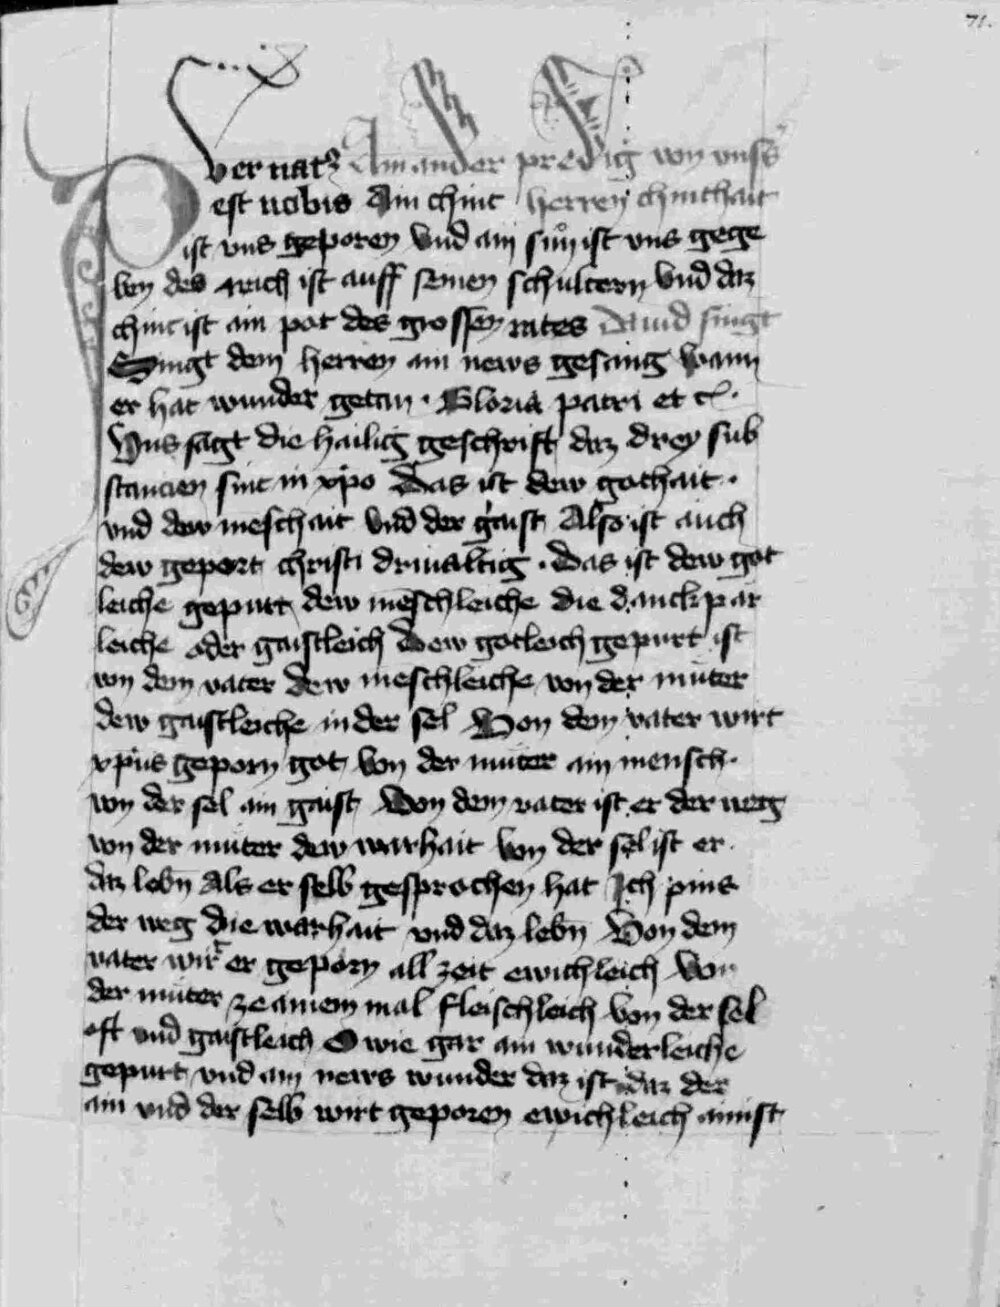 71.
Puer nat9 Ain ander predig von vnss
est nobis Ain chint herren chinthait
ist vns geporen vnd ain sun ist vns gege
ben des reich ist auff seinen schultern vnd daz
chint ist ain pot des grossen rates Dauid singt
Singt dem herren ain news gesang wann
er hat wunder getan · Gloria patri et c̃ ·
Vns sagt die hailig geschrift daz drey sub
stancien sint in xp̄o Das ist dew gothait ·
vnd dew meschait vnd der gaist Also ist auch
dew geport christi driualtig · Das ist dew got
leiche gepurt dew meschleiche die danckpar
leiche oder gaistleich Dew gotleich gepurt ist
von dem vater dew meschleiche von der muter
dew gaistleiche in der sel Von dem vater wirt
xp̄us geporn got von der muter ain mensch ·
von der sel ain gaist Von dem vater ist er der weg
von der muter dew warhait von der sel ist er
daz lebn̄ Als er selb gesprochen hat Ich pins
der weg die warhait vnd daz lebn̄ Von dem
vater wirt er geporn all zeit ewichleich Von
der muter ze ainem mal fleischleich von der sel
oft vnd gaistleich O wie gar ain wunderleiche
gepurt vnd ain news wunder daz ist daz der
ain vnd der selb wirt geporen ewichleich ainist